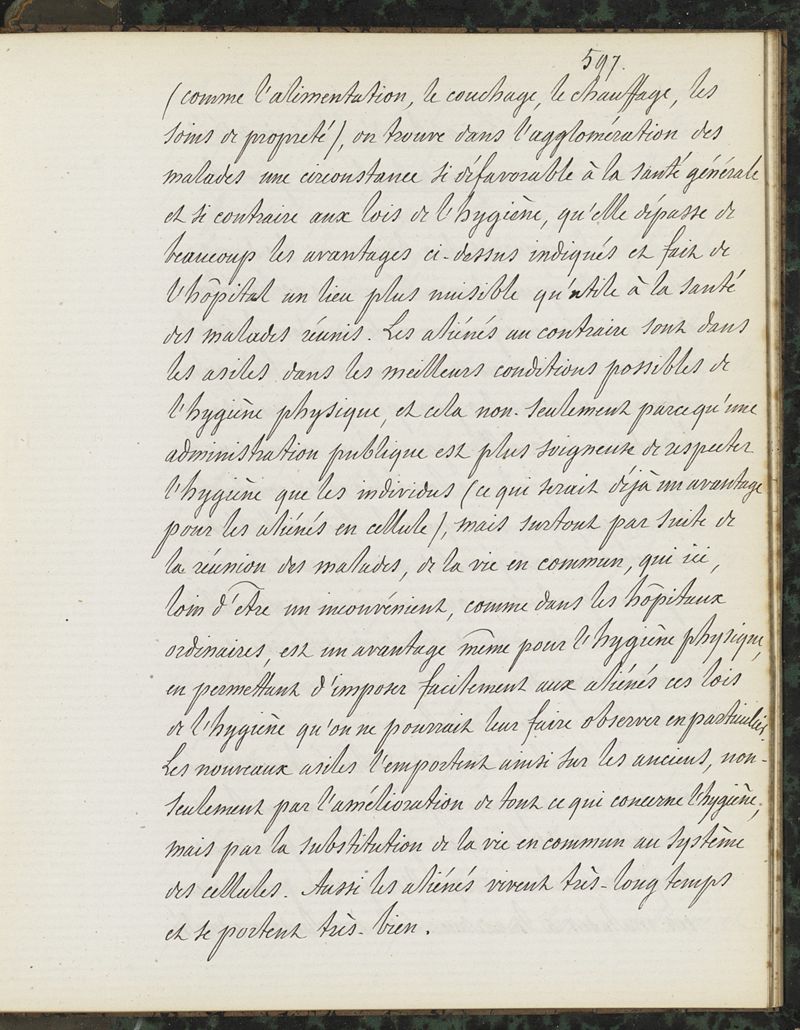 597.
(comme l'alimentation, le couchage, le chauffage, les
soins de propreté), on trouve dans l'agglomération des
malades une circonstance si défavorable à la santé générale
et si contraire aux lois de l'hygiène, qu'elle dépasse de
beaucoup les avantages ci-dessus indiqués et fait de
l'hôpital un lieu plus nuisible qu'utile à la santé
des malades réunis. Les aliénés au contraire sont dans
les asiles dans les meilleurs conditions possibles de
l'hygiène physique, et cela non-seulement parcequ'une
administration publique est plus soigneuse de respecter
l'hygiène que les individus (ce qui serait déjà un avantage
pour les aliénés en cellule), mais surtout par suite de
la réunion des malades, de la vie en commun, qui ici,
loin d'être un inconvénient, comme dans les hôpitaux
ordinaires, est un avantage même pour l'hygiène physique,
en permettant d'imposer facilement aux aliénés ces lois
de l'hygiène qu'on ne pourrait leur faire observer en particulier.
Les nouveaux asiles l'emportent ainsi sur les anciens, non-
seulement par l'amélioration de tout ce qui concerne l'hygiène,
mais par la substitution de la vie en commun au système
des cellules. Aussi les aliénés vivent très-longtemps
et se portent très-bien.